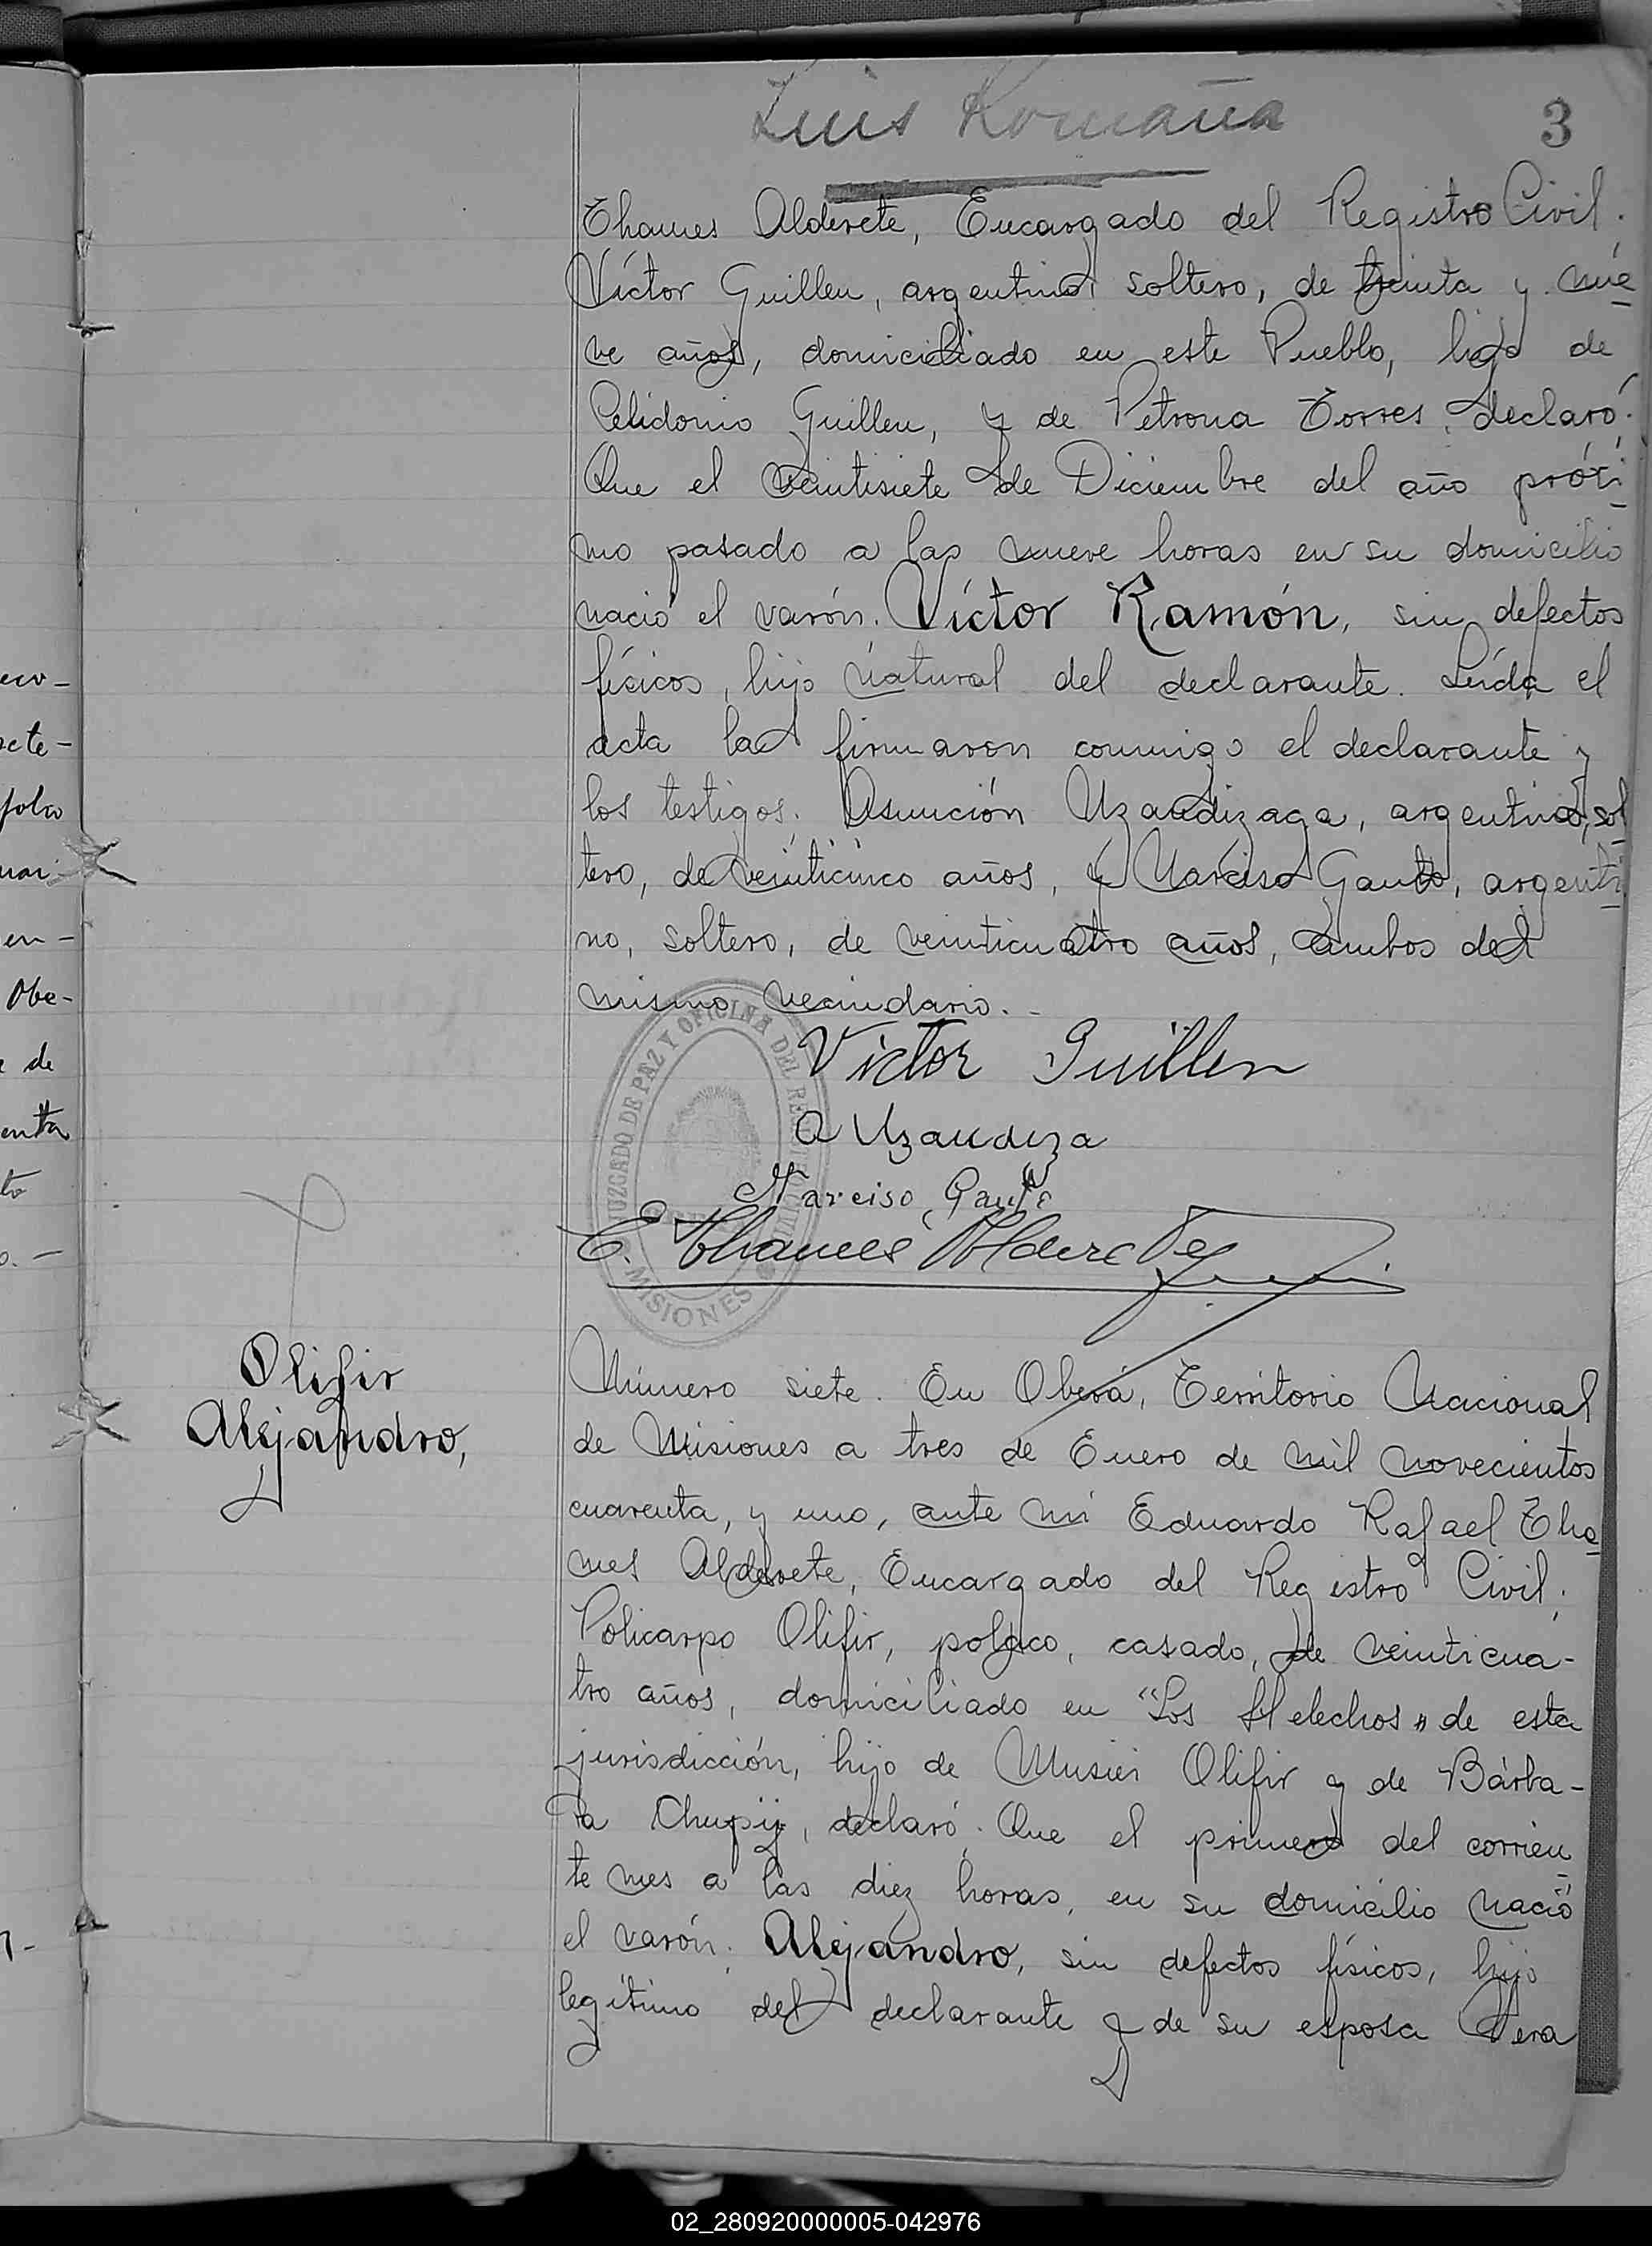 Luis Romaña
3
Thames Alderete, Encargado del Registro Civil.
Víctor Guillen, argentino, soltero, de treinta y nue
ve años, domiciliado en este Pueblo, hijo de
Celidonio Guillen, y de Petrona Torres, declaró:
Que el veintisiete de Diciembre del año próxi
mo pasado a las nueve horas en su domicilio
nació el varón. Víctor Ramón, sin defectos
físicos, hijo natural del declarante. Leída el
acta la firmaron conmigo el declarante y
los testigos. Asunción Uzandizaga, argentino, sol
tero, de veinticinco años, y Narciso Gauto, argenti
no, soltero, de veinticuatro años, ambos del
mismo vecindario.-
JUZGADO DE PAZ Y OFICINA DEL REGISTRO CIVIL
MISIONES
Víctor Guillen
A Uzandiza
Narciso Gauto
E. Thames Alderete
Olifir
Alejandro,
Número siete. En Oberá, Territorio Nacional
de Misiones a tres de Enero de mil novecientos
cuarenta, y uno, ante mi Eduardo Rafael Tha
mes Alderete, Encargado del Registro Civil.
Policarpo Olifir, polaco, casado, de veinticua-
tro años, domiciliado en "Los Helechos" de esta
jurisdicción, hijo de Musiei Olifir y de Bárba-
ra Chupij, declaró. Que el primero del corrien
te mes a las diez horas, en su domicilio nació
el varón. Alejandro, sin defectos físicos, hijo
legítimo del declarante y de su esposa Vera
eco-
ecte-
folio
nar
en-
Obe-
de
enta
to
o.-
02_280920000005-042976